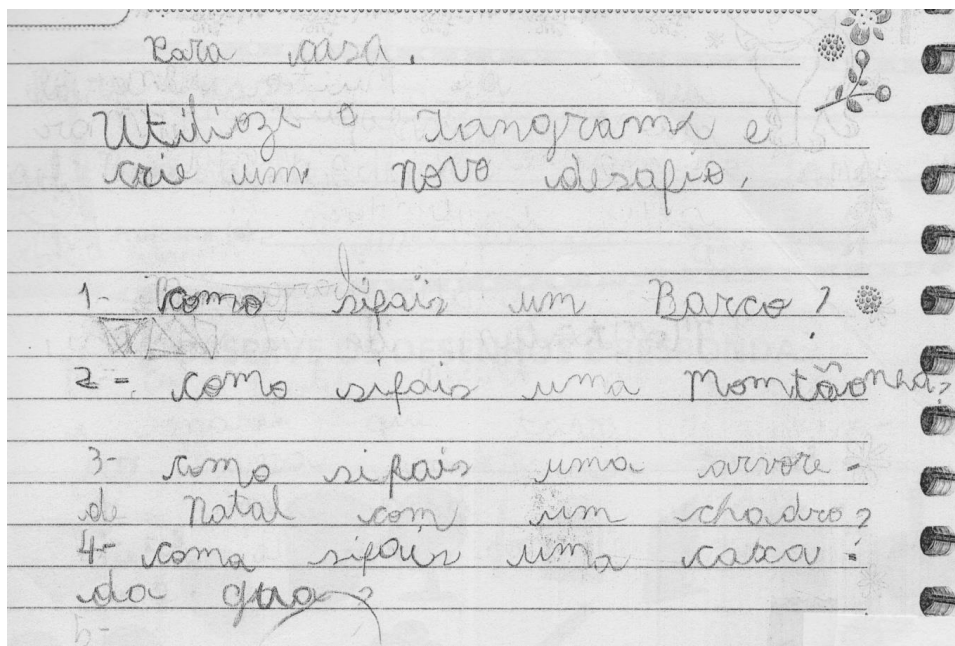 Para casa.
Utilize o tangrama e
crie um novo desafio.
1- como sifais um Barco?
2- como sifais uma Momtãonha?
3- como sifais uma arvore-
de Natal com um chadro?
4- coma sifais uma caxa:
da gua?